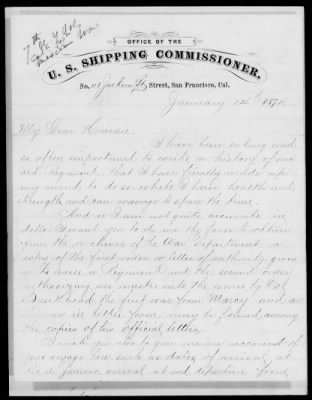 7th N.Y. Vol.
Mexican War
OFFICE OF THE
U. S. SHIPPING COMMISSIONER,
No. 118 Jackson St, Street, San Francisco, Cal.
January 14th 187
My Dear Hardie.
I have been so long and
so often importuned to write a history of our
old Regiment, that I have finally made up
my mind to do so while I have health and
strength and can manage to spare the time.
And as I am not quite accurate in
data, I want you to do me the favor to obtain
from the archives of the War Department a
copy of the first order or letter of authority given
to raise a Regiment and the second order
authorizing our muster into the service by Col
Bankhead, the first was from Marcy and as
in letter form may be found among
the copies of his official letters.
I wish you also to give me an account of
our voyage here such as dates of arrival, at
Rio de Janeiro, arrival at and departure from